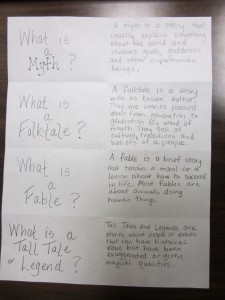 What is
a
Myth?
A myth is a story that
usually explains something
about the world and
involves gods, goddesses
and other superhuman
beings.
What is
a
Folktale?
A folktale is a story
with no known author.
They are stories passed
down from generation to
generation by word of
mouth. They tell of
culture, traditions and
beliefs of a people.
What is
a
Fable?
A fable is a brief story
that teaches a moral or
lesson about how to succeed
in life. Most fables are
about animals doing
human things.
What is a
Tall Tale
or Legend?
Tall Tales and Legends are
stories about people or events
that can have historical
value but have been
exaggerated or given
magical qualities.